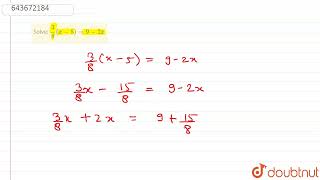 643672184
Solve: 3/8 (x - 5) = 9 - 2x
3/8 (x - 5) = 9 - 2x
3/8 x - 15/8 = 9 - 2x
3/8 x + 2x = 9 + 15/8
doubtnut